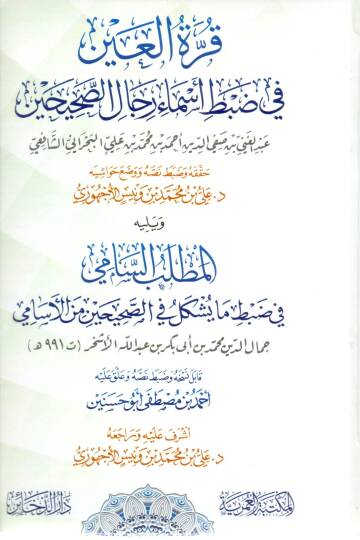 قُرَّةُ العَيْن
فِي ضَبْطِ أَسْمَاءِ رِجَالِ الصَّحِيحَيْن
عبد الغني بن صفي الدين أحمد بن محمد بن علي البحراني الشافعي
حققه وضبط نصه ووضع حواشيه
د. علي بن محمد بن ونيس الأجهوري
ويليه
المَطْلَبُ السَّامِي
فِي ضَبْطِ مَا يُشْكِلُ فِي الصَّحِيحَيْنِ مِنَ الأَسَامِي
جمال الدين محمد بن أبي بكر بن عبد الله الأشخر (ت ٩٩١ هـ)
قابل نسخه وضبط نصه وعلق عليه
أحمد بن مصطفى أبو حسنين
أشرف عليه وراجعه
د. علي بن محمد بن ونيس الأجهوري
المكتبة العمرية
دار الذخائر